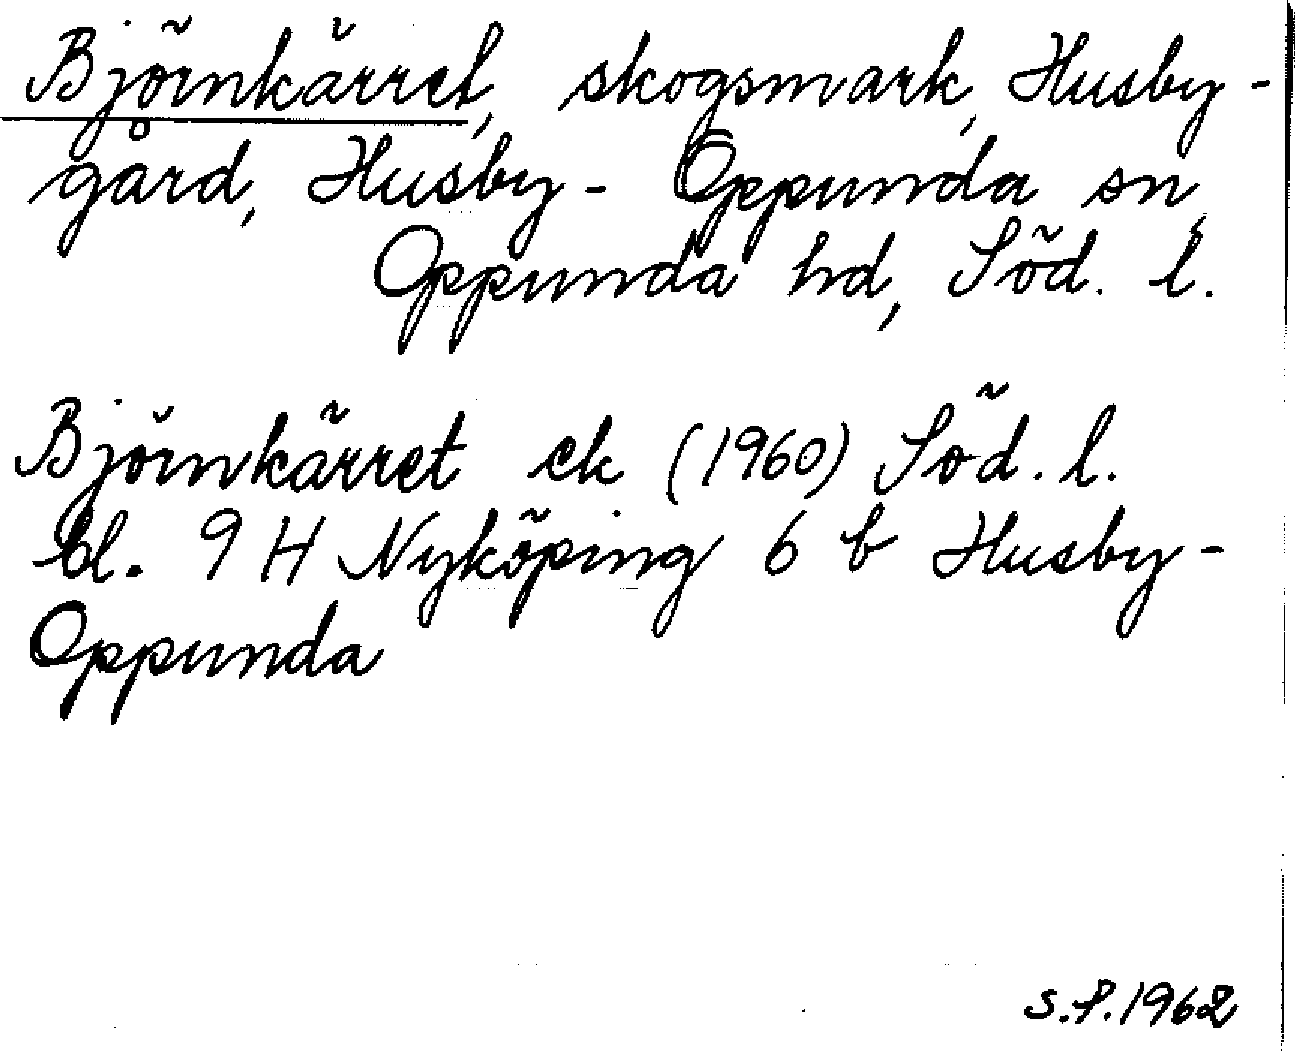 Björnkärret, skogsmark, Husby-
gård, Husby-Oppunda sn,
Oppunda hd, Söd. l.
Björnkärret ek (1960) Söd. l.
bl. 9 H Nyköping 6 b Husby-
Oppunda
S.P.1962